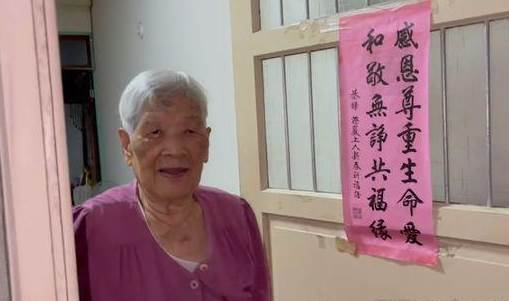 感恩尊重生命愛
和敬無諍共福緣
恭錄 證嚴上人新春祈福語